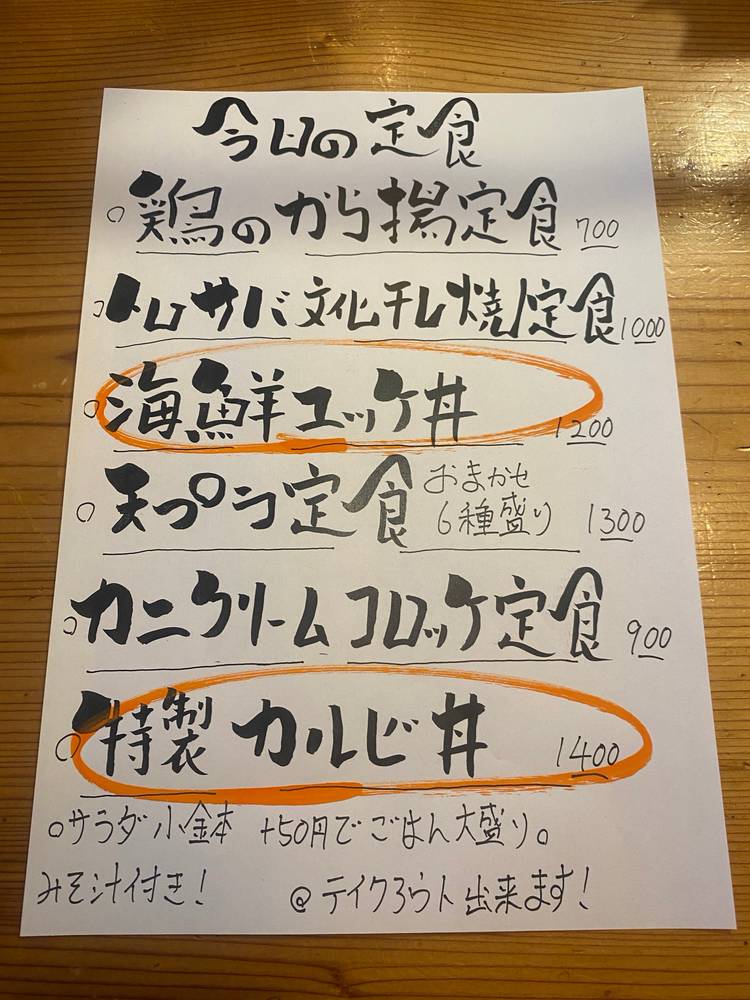 今日の定食
○鶏のから揚定食 700
○トロサバ文化干し焼定食 1000
○海鮮ユッケ丼 1200
○天プラ定食 おまかせ 6種盛り 1300
○カニクリームコロッケ定食 900
○特製カルビ丼 1400
○サラダ小鉢 +50円でごはん大盛り。
みそ汁付き! @テイクアウト出来ます!